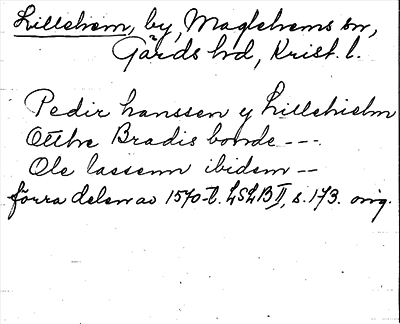 Lillehem, by, Maglehems sn,
Gärds hd, Krist. l.
Pedir hanssen y Lillehielm
Otthe Bradis bonde ---
Ole lassenn ibidem --
förra delen av 1570-t. LSLB II, s. 173. orig.